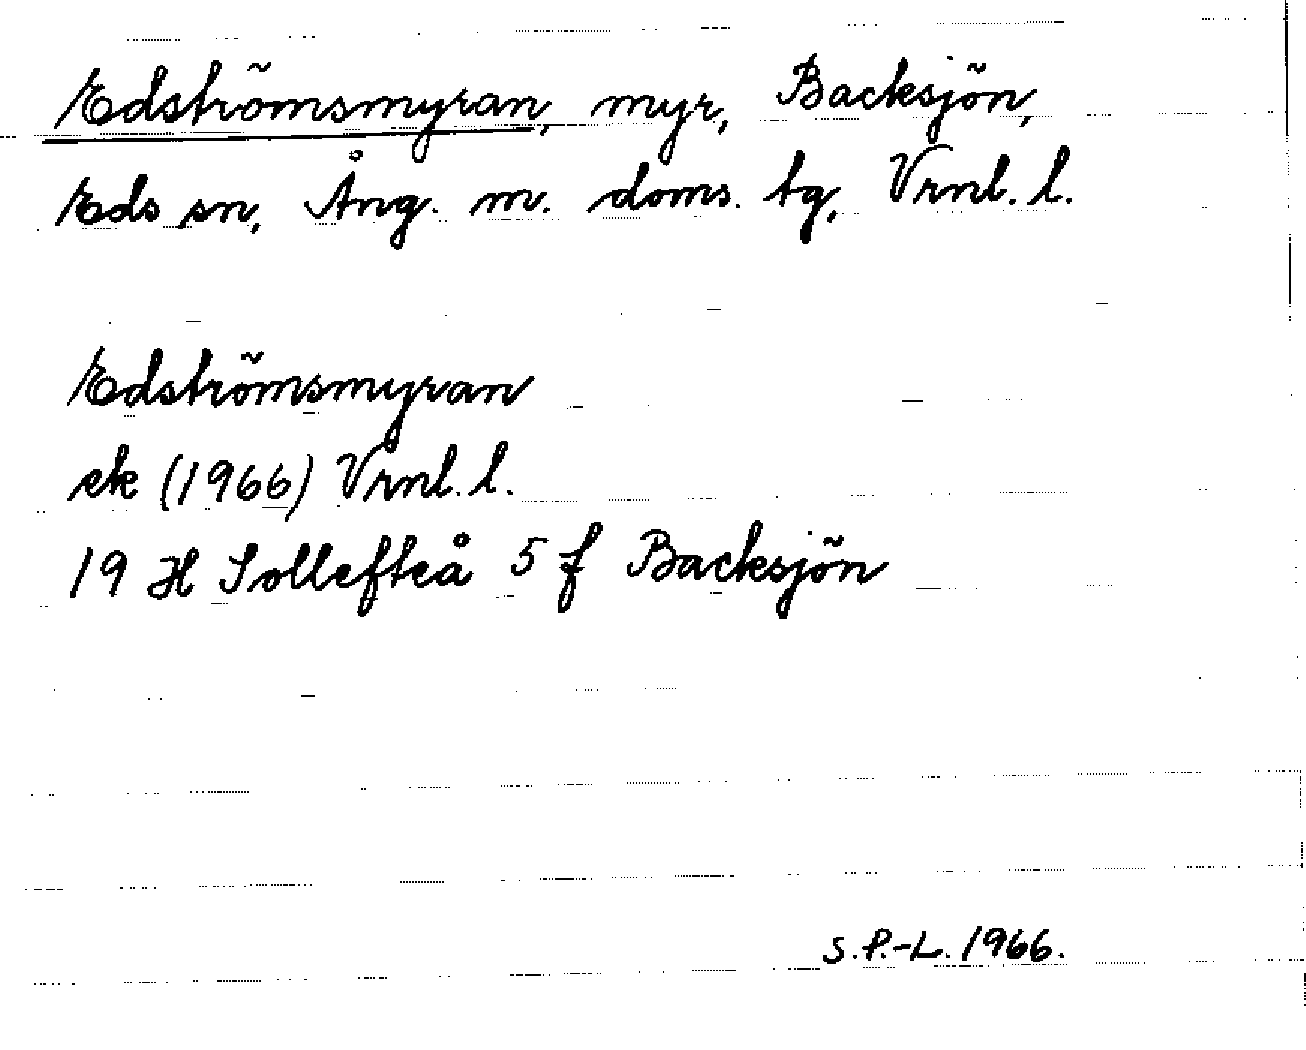 Edströmsmyran, myr, Backsjön,
Eds sn, Ång. m. doms. tg, Vrnl. l.
Edströmsmyran
ek (1966) Vrnl. l.
19 H Sollefteå 5 f Backsjön
S.P.-L. 1966.